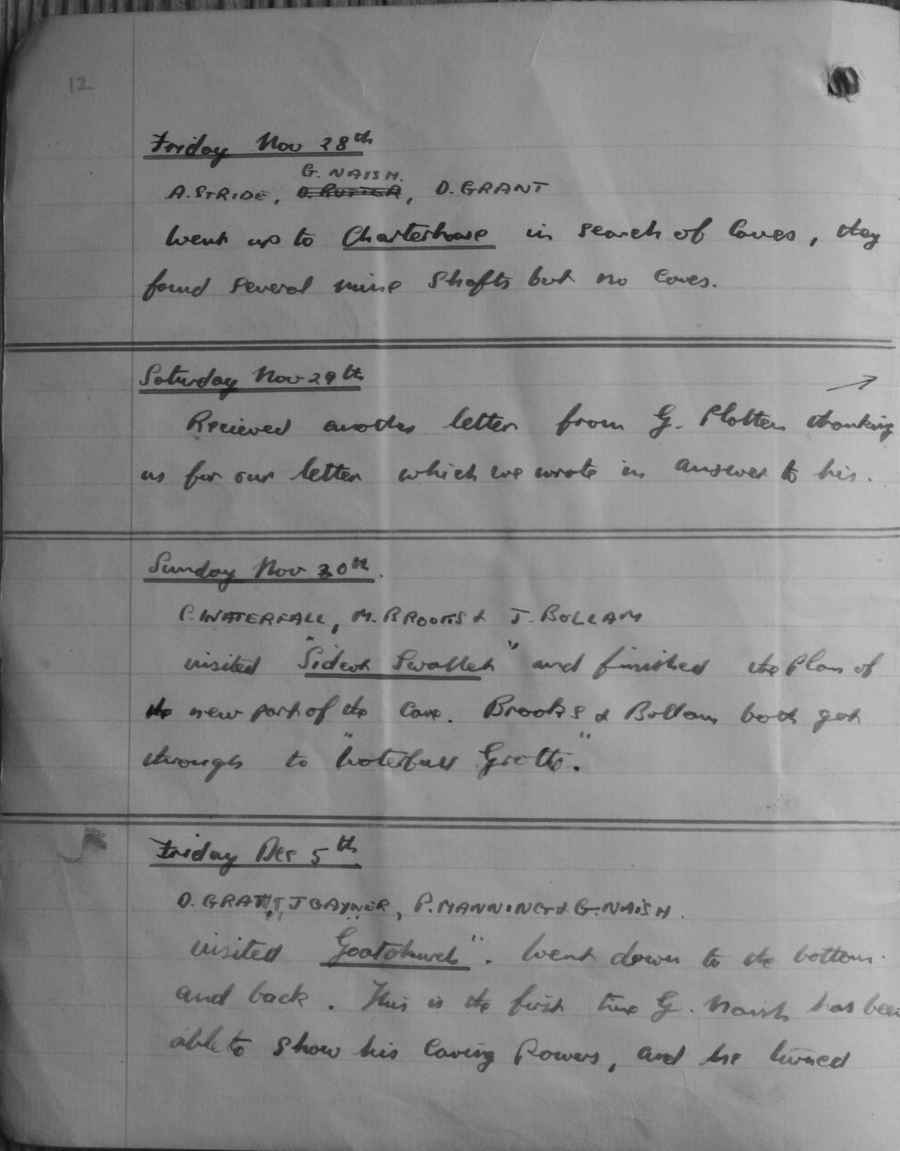 12
Friday Nov 28th
G. NAISH.
A. STRIDE, D. RUTTER, D. GRANT
Went up to Charterhouse in search of Caves, they
found several mine shafts but no Caves.
Saturday Nov 29th
Recieved another letter from G. Platten thanking
us for our letter which we wrote in answer to his.
Sunday Nov 30th.
P. WATERFALL, M. BROOKS & J. BOLLAM
visited "Sidcot Swallet" and finished the Plan of
the new part of the Cave. Brooks & Bollam both got
through to "Waterfall Grotto".
Friday Dec 5th
D. GRANT, J GAYNER, P. MANNING & G. NAISH.
visited "Goatchurch". Went down to the bottom
and back. This is the first time G. Naish has been
able to show his Caving Powers, and he turned